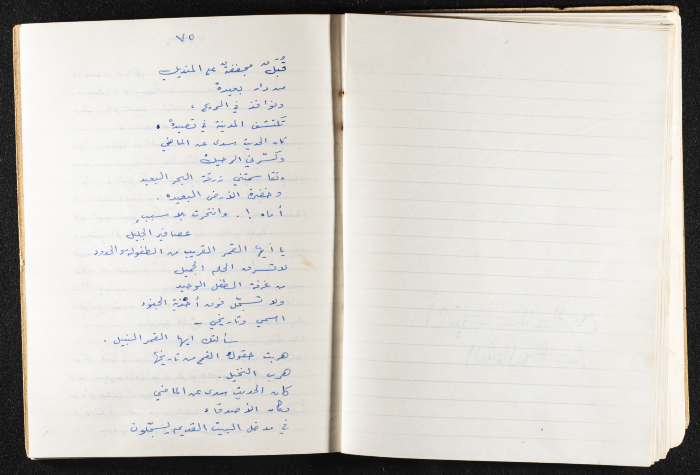 ٧٥
قُبَلٌ مجففةٌ على المنديل
من دار بعيدهْ
ونوافذ في الريح ،
تكتشف المدينة في قصيدهْ .
كان الحديث سدى عن الماضي
وكسّرني الرحيل
وتقاسمتني زرقة البحر البعيد
وخضرة الأرض البعيده .
أماه ! . وانتحرت بلا سبب
عصافير الجليل
يا أيها القمر القريب من الطفولة والحدود
لا تسرق الحلم الجميل
من غرفة الطفل الوحيد
ولا تسجّل فوق أحذية الجنود
اسمي وتاريخي –
سألتك ايها القمر النبيل .
هربت حقول القمح من تاريخها
هرب النخيل .
كان الحديث سدى عن الماضي
وكان الأصدقاء
في مدخل البيت القديم يسجّلون